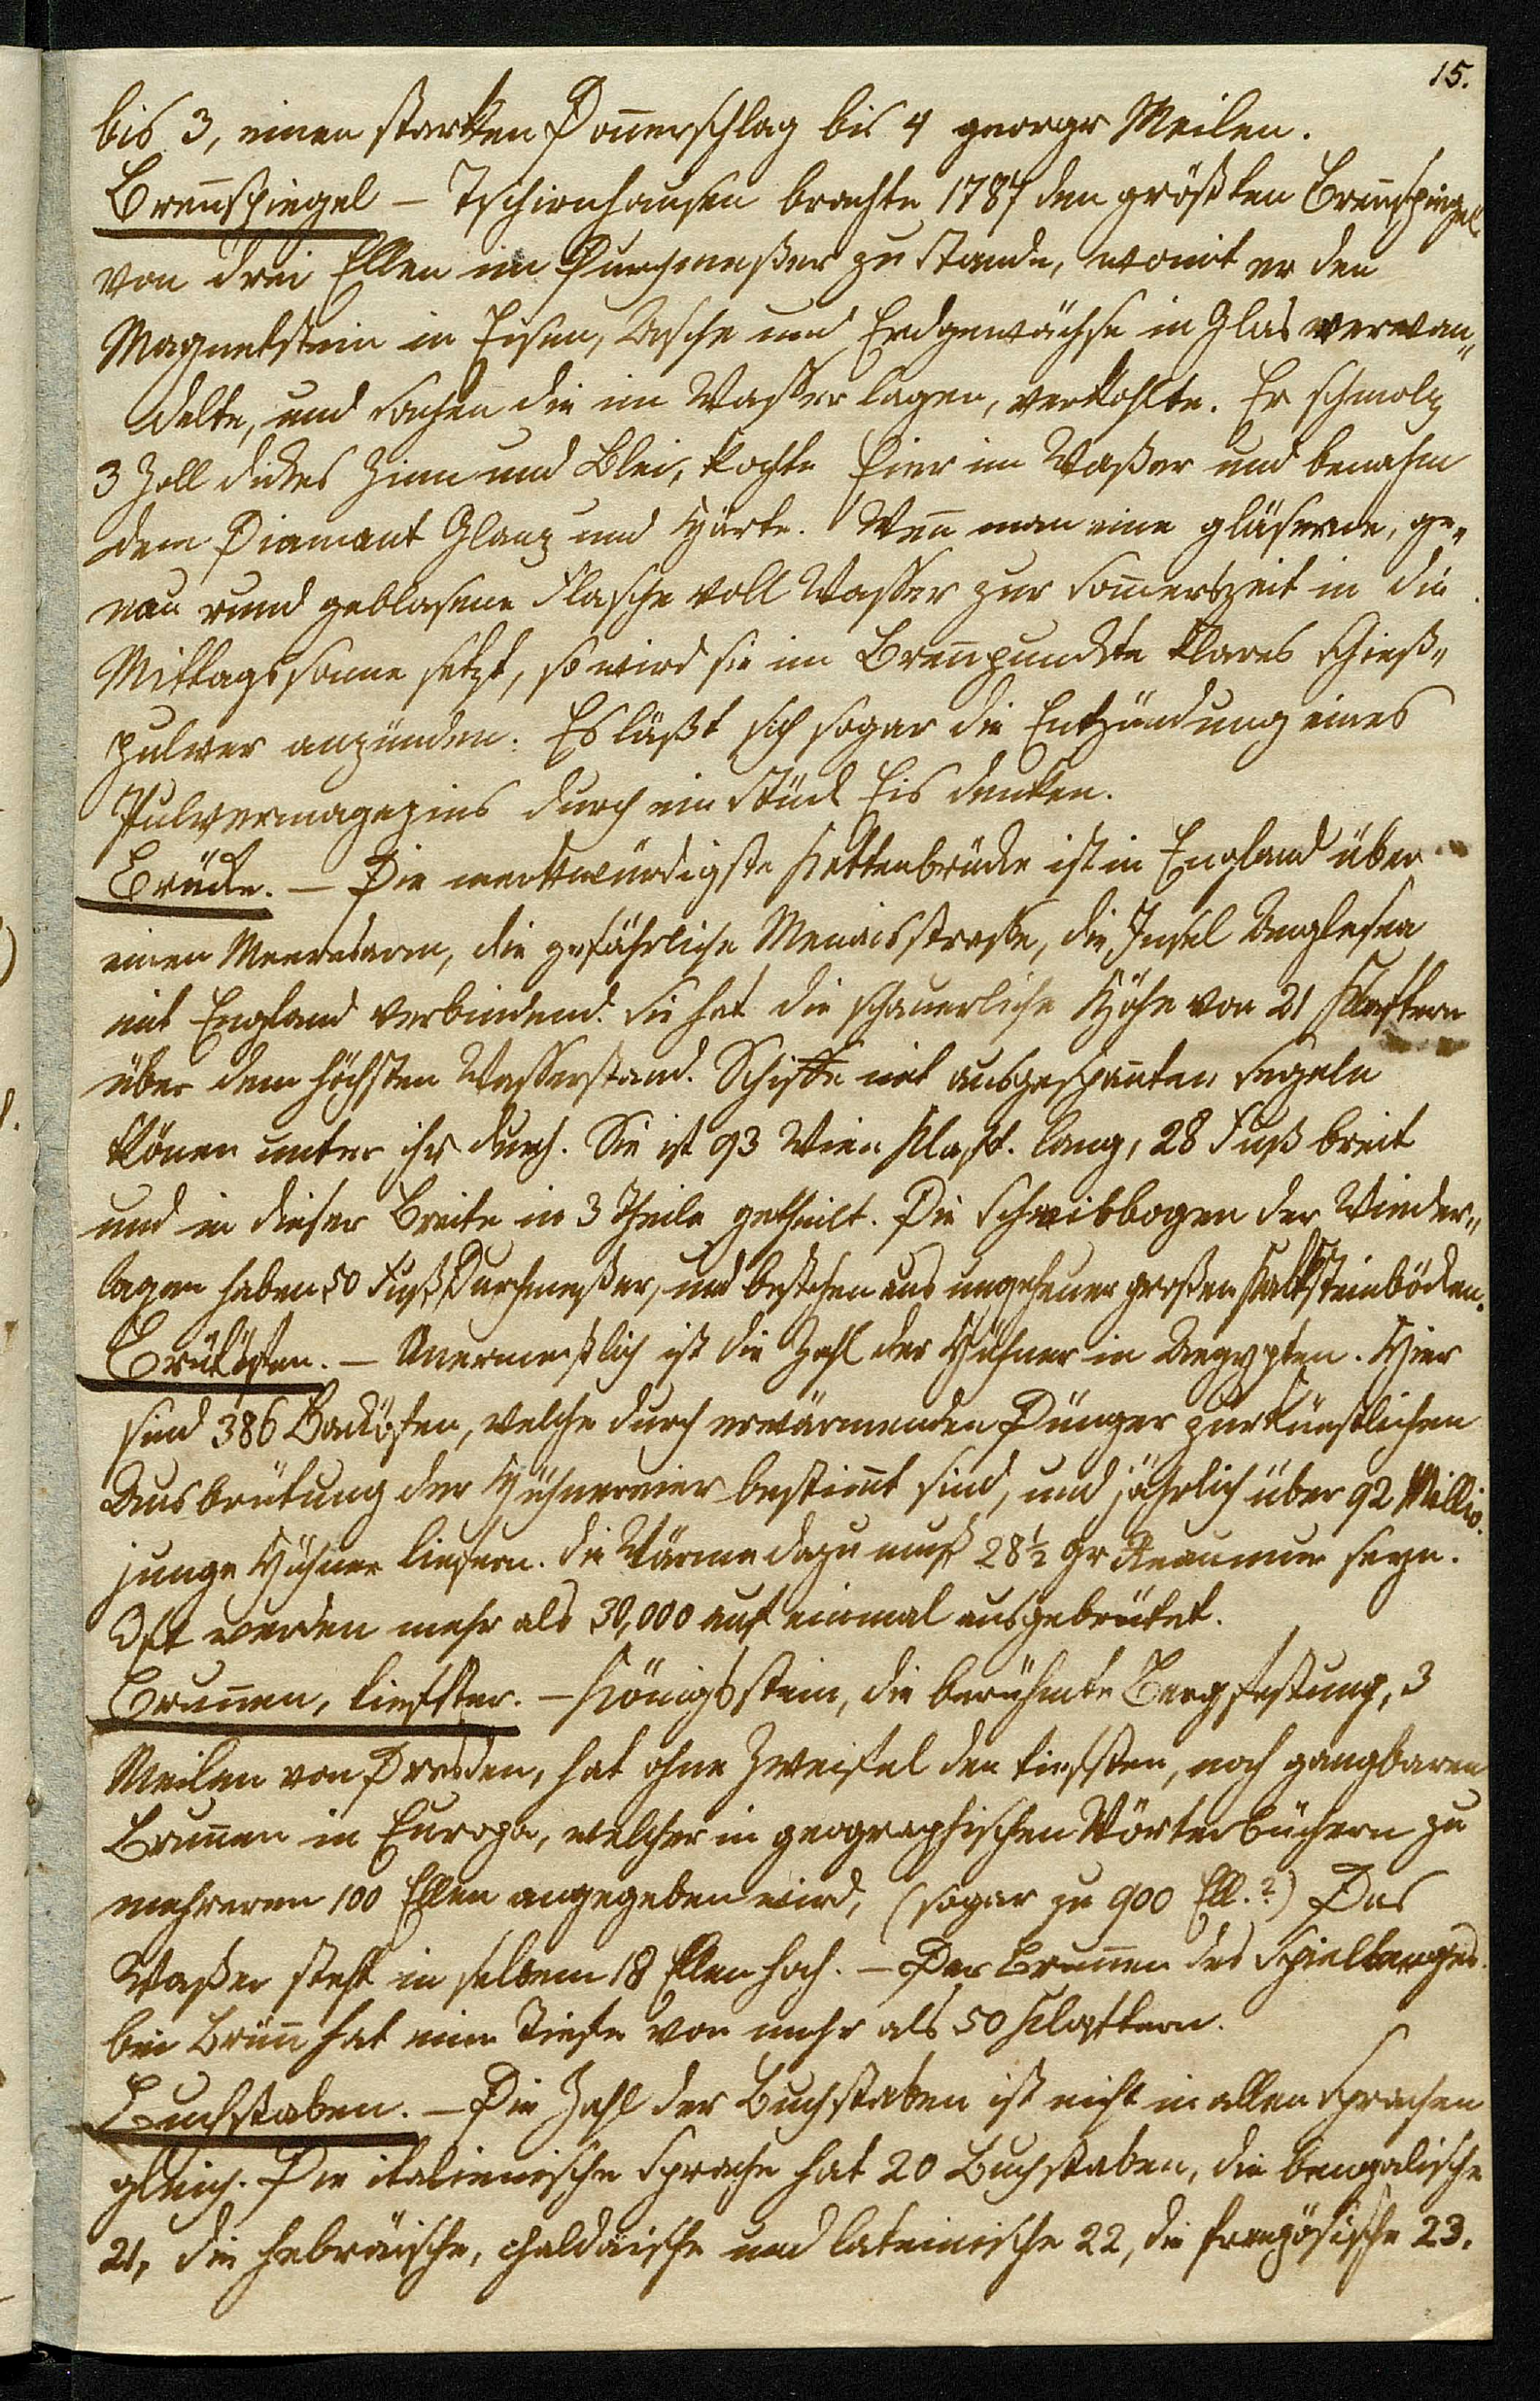 15.
bis 3, einen starken Donnerschlag bis 4 geogr Meilen.
Brennspiegel – Tschirnhausen brachte 1787 den größten Brennspiegel
von drei Ellen im Durchmeßer zu Stande, womit er den
Magnetstein in Eisen, Asche und Erdgewächse in Glas verwan„
delte, und Sachen die im Wasser lagen, verkohlte. Er schmolz
3 Zoll dickes Zinn und Blei, kochte Eier im Waßer und benahm
dem Diamant Glanz und Härte. Wenn man eine gläserne, ge„
nau rund geblasene Flasche voll Wasser zur Sommerszeit in die
Mittagssonne setzt, so wird sie im Brennpunckte klares Schieß„
pulver anzünden. Es läßt sich sogar die Entzündung eines
Pulvermagazins durch ein Stück Eis denken.
Brücke. – Die merkwürdigste Kettenbrücke ist in England über
einen Meeresarm, die gefährliche Menaisstrasse, die Insel Anglesea
mit England verbindend. Sie hat die schauerliche Höhe von 21 Klaftern
über dem höchsten Wasserstand. Schiffe mit ausgespannten Segeln
können unter ihr durch. Sie ist 93 Wien Klaft. lang, 28 Fuß breit
und in dieser Breite in 3 Theile getheilt. Die Schwibbogen der Wieder„
lagen haben 50 Fuß Durchmeßer, und bestehen aus ungeheuer großen Kalksteinböcken.
Brütöfen. – Unermeßlich ist die Zahl der Hühner in Aegypten. Hier
sind 386 Backöfen, welche durch erwärmenden Dünger zur künstlichen
Ausbrütung der Hühnereier bestimmt sind, und jährlich über 92 Millio.
junge Hühner liefern. Die Wärme dazu muß 28½ Gr Reaumur seyn.
Oft werden mehr als 30,000 auf einmal ausgebrütet.
Brunnen, tiefster. – Königsstein, die berühmte Bergfestung, 3
Meilen von Dresden, hat ohne Zweifel den tiefsten, noch gangbaren
Brunnen in Europa, welcher in geographischen Wörterbüchern zu
mehreren 100 Ellen angegeben wird, (sogar zu 900 Ell.?) Das
Waßer steht in selbem 18 Ellen hoch. – Der Brunnen des Spielberges
bei Brünn hat eine Tiefe von mehr als 50 Klaftern.
Buchstaben. – Die Zahl der Buchstaben ist nicht in allen Sprachen
gleich. Die italienische Sprache hat 20 Buchstaben, die bengalische
21, die hebräische, chaldäische und lateinische 22, die französische 23.